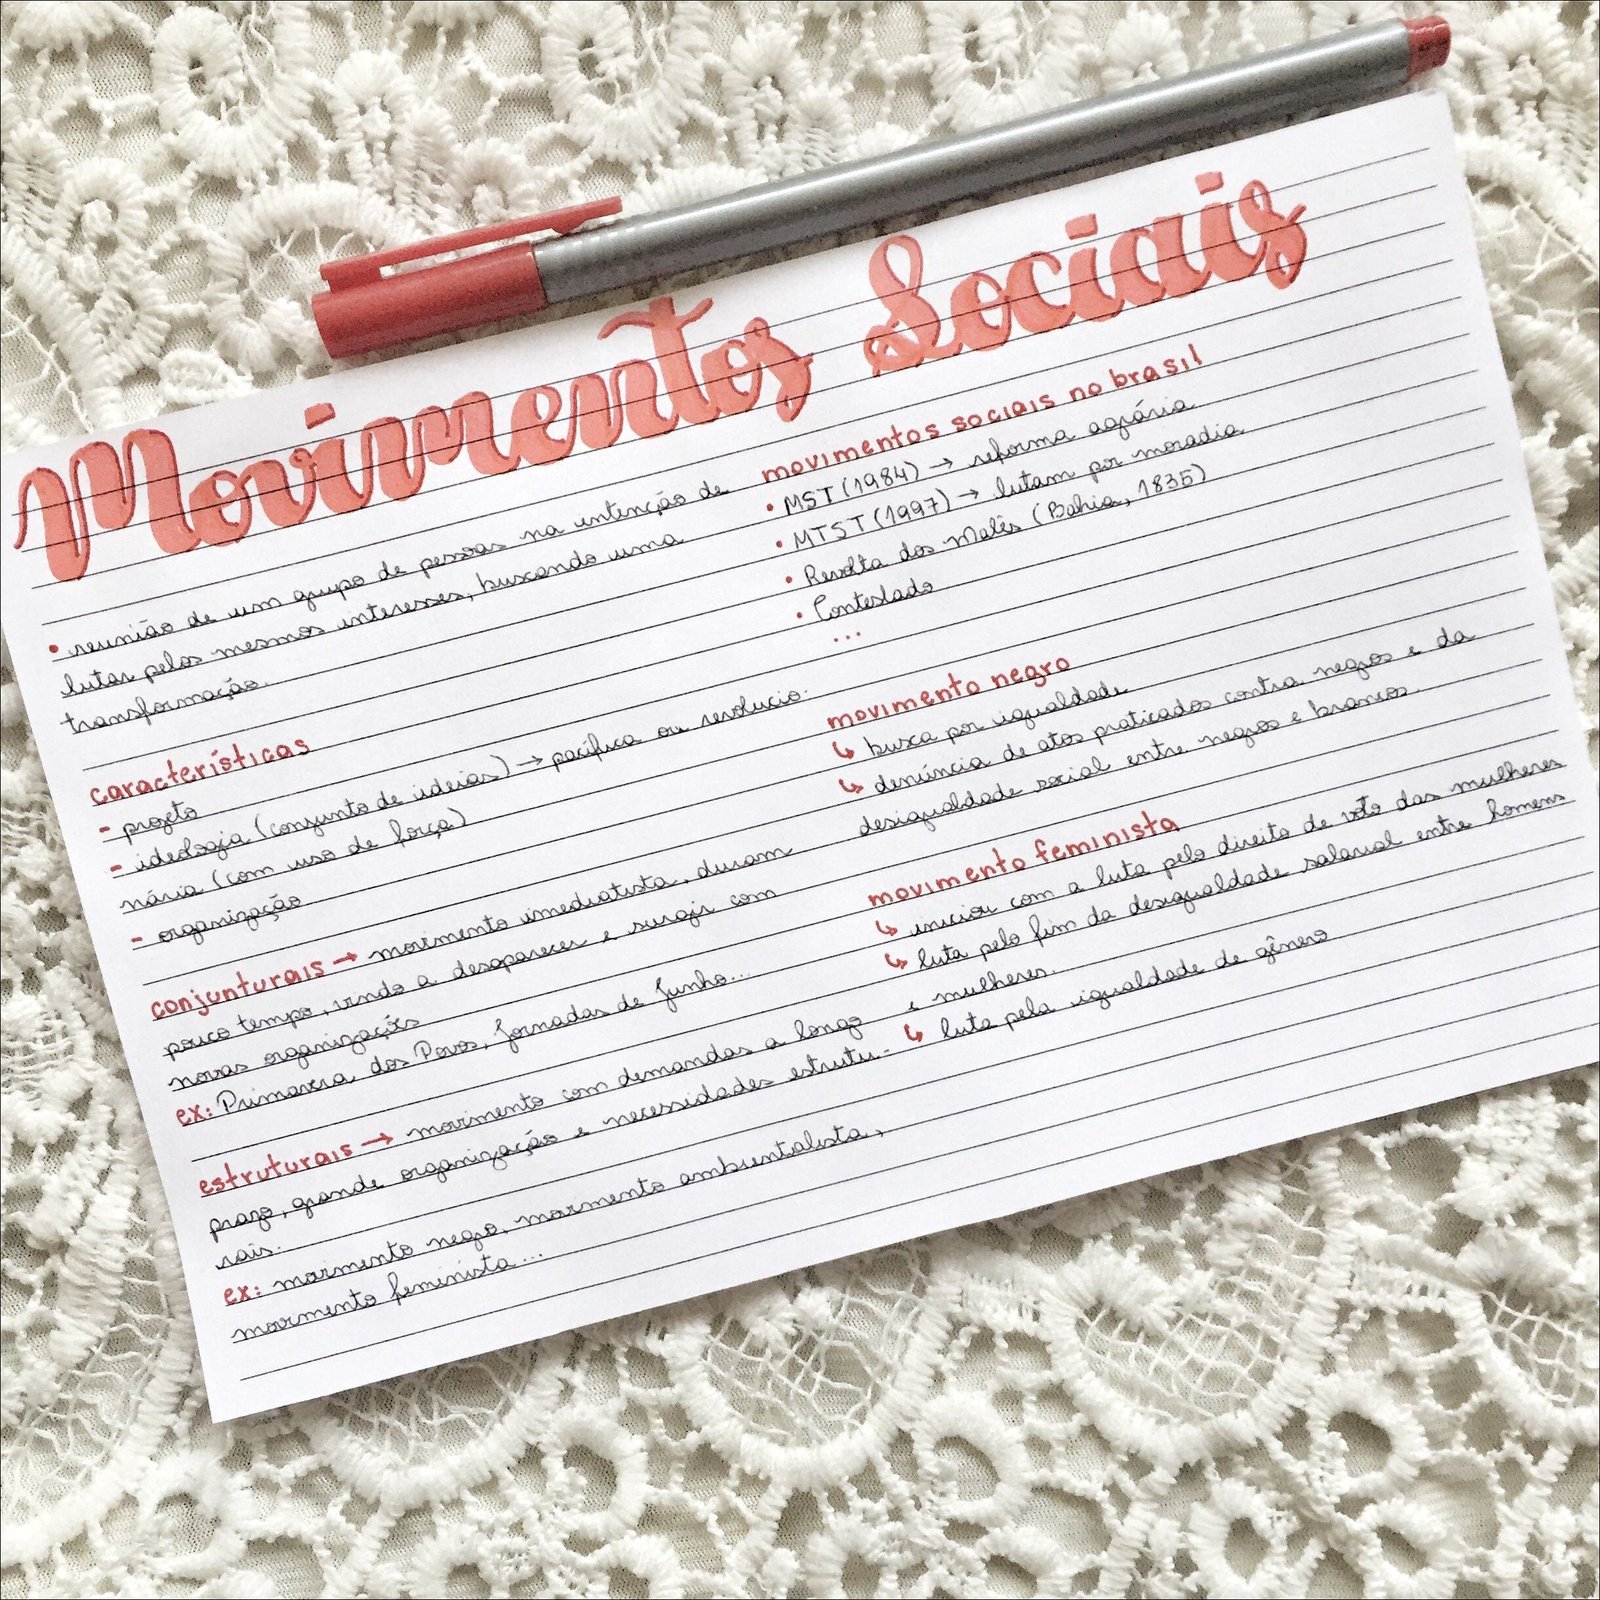 Movimentos Sociais
• reunião de um grupo de pessoas na intenção de
lutar pelos mesmos interesses, buscando uma
transformação.
características
- projeto
- ideologia (conjunto de ideias) → pacífica ou revolucio-
nária (com uso de força)
- organização
conjunturais → movimento imediatista, duram
pouco tempo, vindo a desaparecer e surgir com
novas organizações
ex: Primavera dos Povos, Jornadas de Junho...
estruturais → movimento com demandas a longo
prazo, grande organização e necessidades estrutu-
rais.
ex: movimento negro, movimento ambientalista,
movimento feminista...
movimentos sociais no brasil
• MST (1984) → reforma agrária
• MTST (1997) → lutam por moradia
• Revolta dos Malês (Bahia, 1835)
• Contestado
...
movimento negro
↳ busca por igualdade
↳ denúncia de atos praticados contra negros e da
desigualdade social entre negros e brancos.
movimento feminista
↳ iniciou com a luta pelo direito de voto das mulheres
↳ luta pelo fim da desigualdade salarial entre homens
e mulheres.
↳ luta pela igualdade de gênero